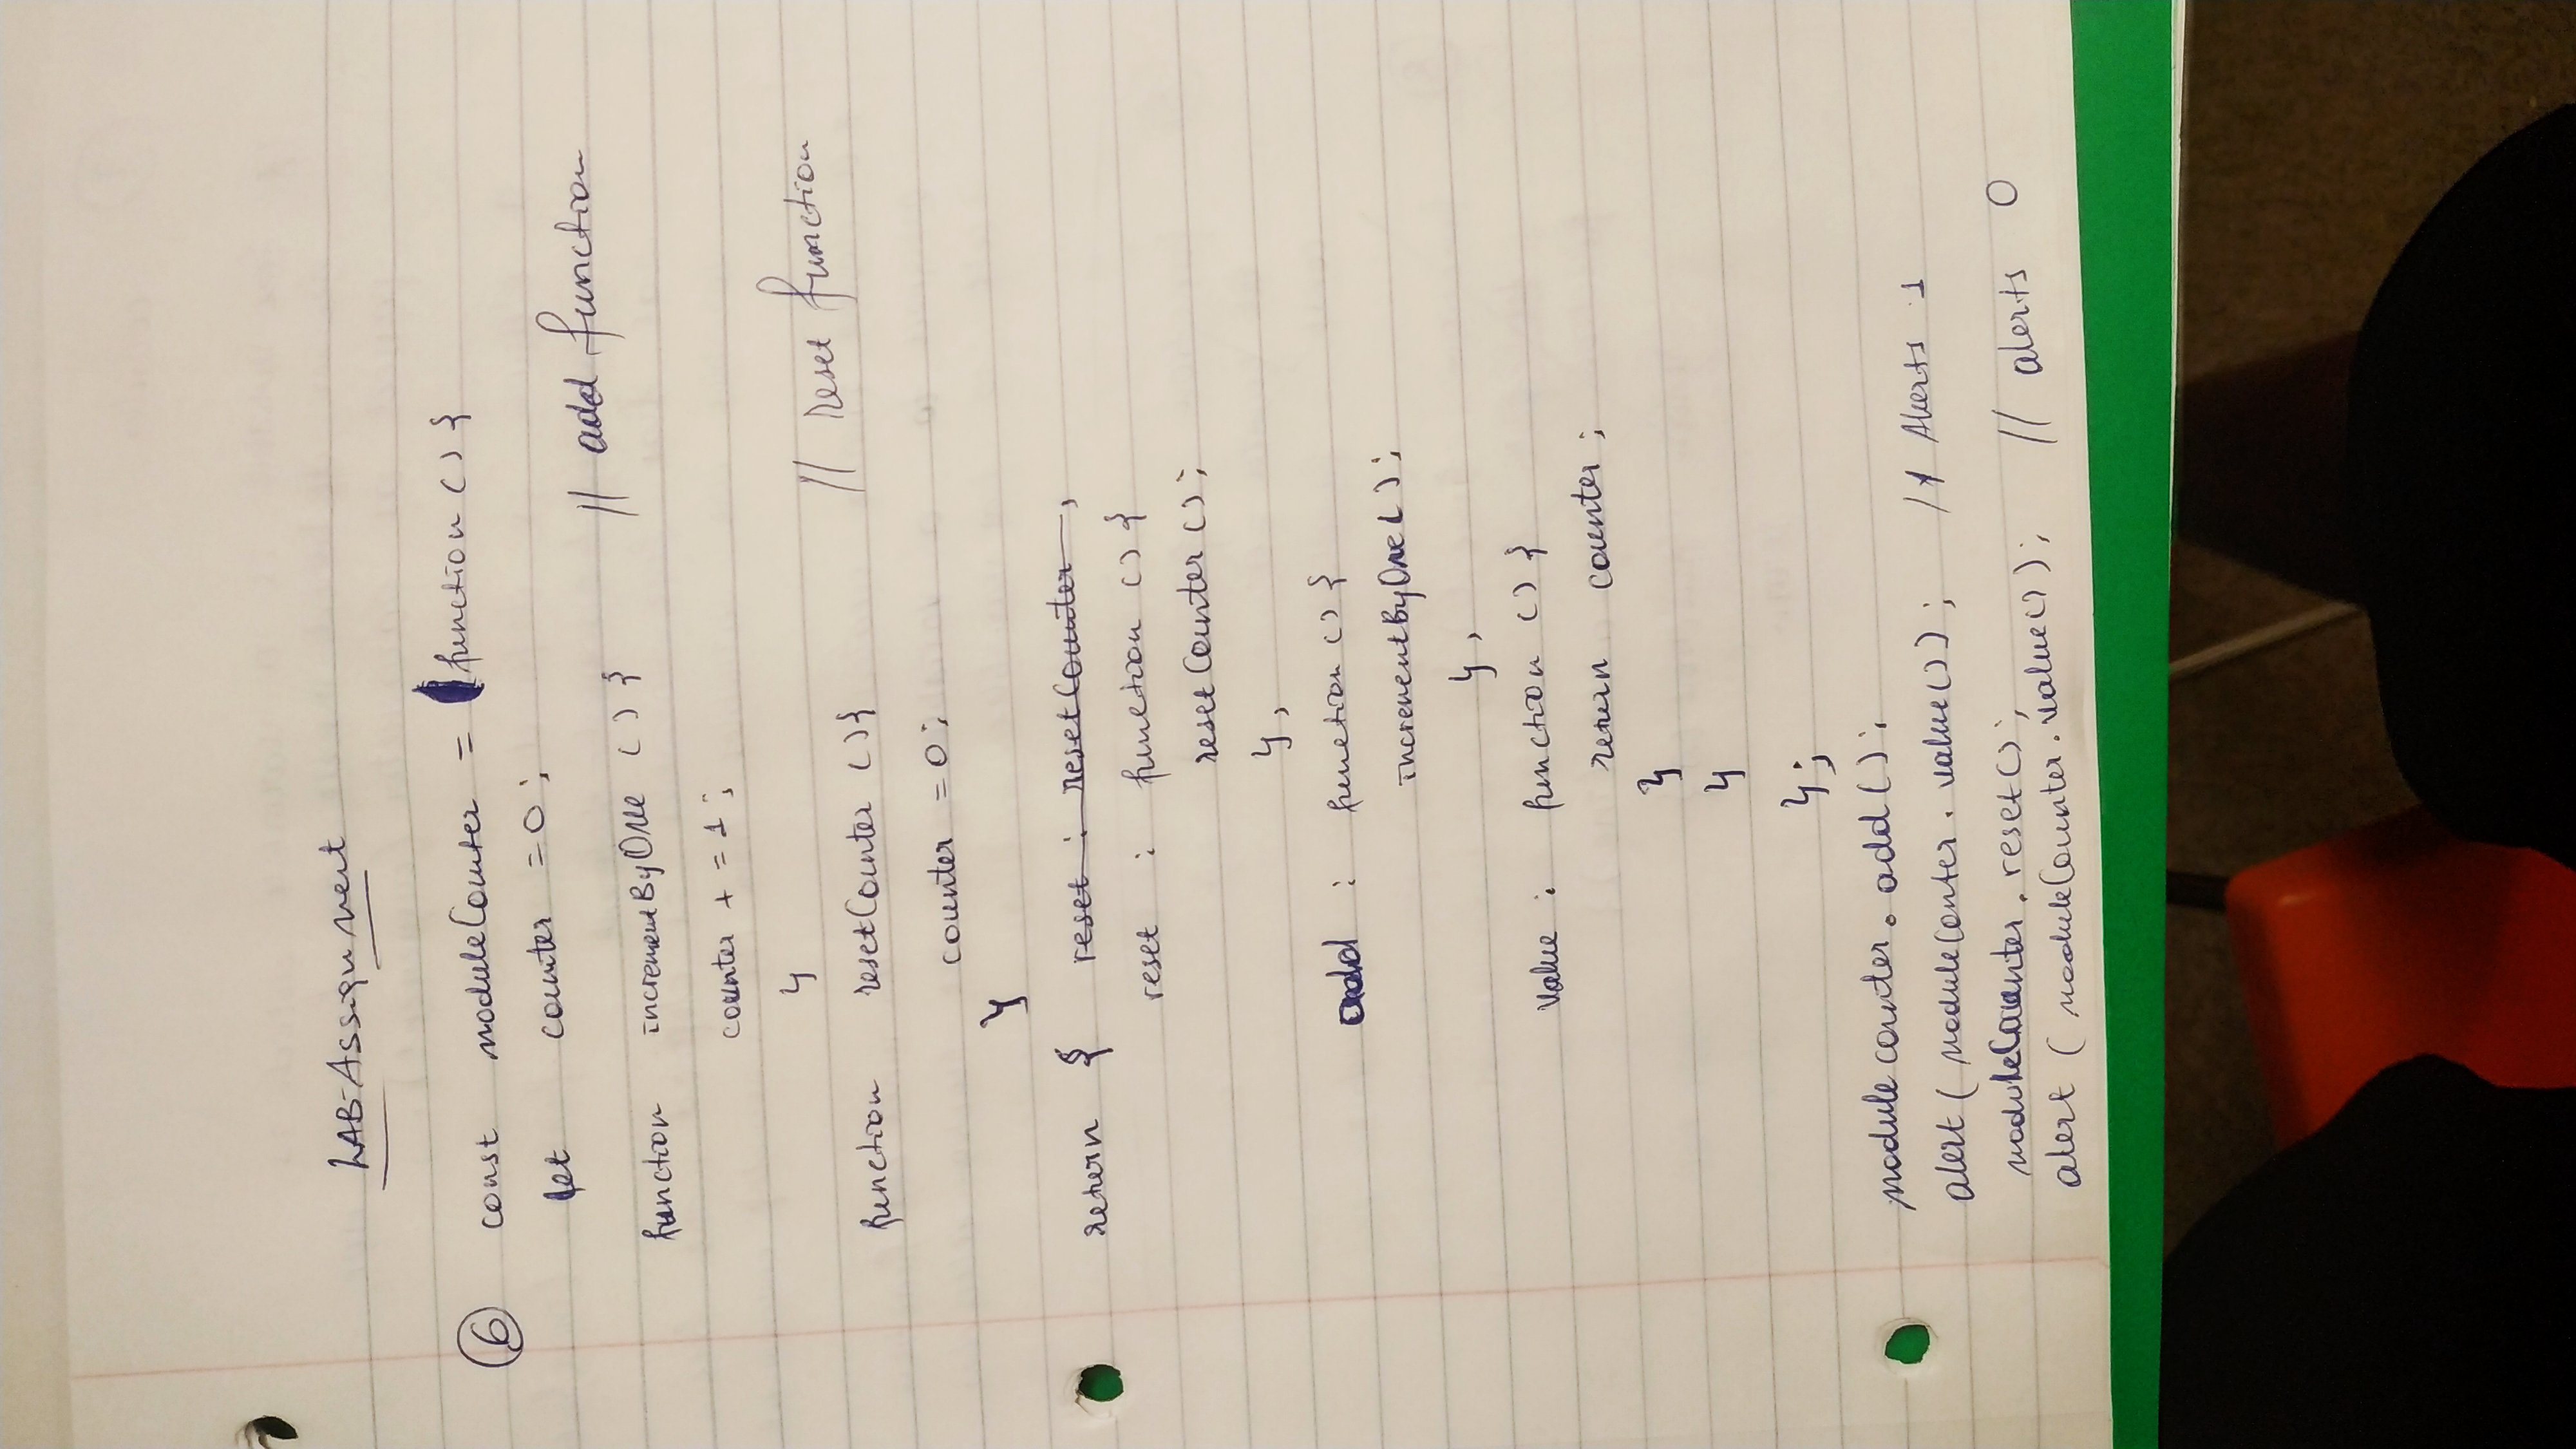 LAB-Assignment
6 const moduleCounter = function () {
let counter = 0;
function incrementByOne () { // add function
counter += 1;
}
function resetCounter () { // reset function
counter = 0;
}
return { reset : resetCounter ,
reset : function () {
resetCounter ();
},
add : function () {
incrementByOne ();
},
value : function () {
return counter;
}
}
};
module counter.add();
alert ( moduleConter.value()); // Alerts 1
moduleCounter.reset();
alert ( moduleCounter.value()); // alerts 0